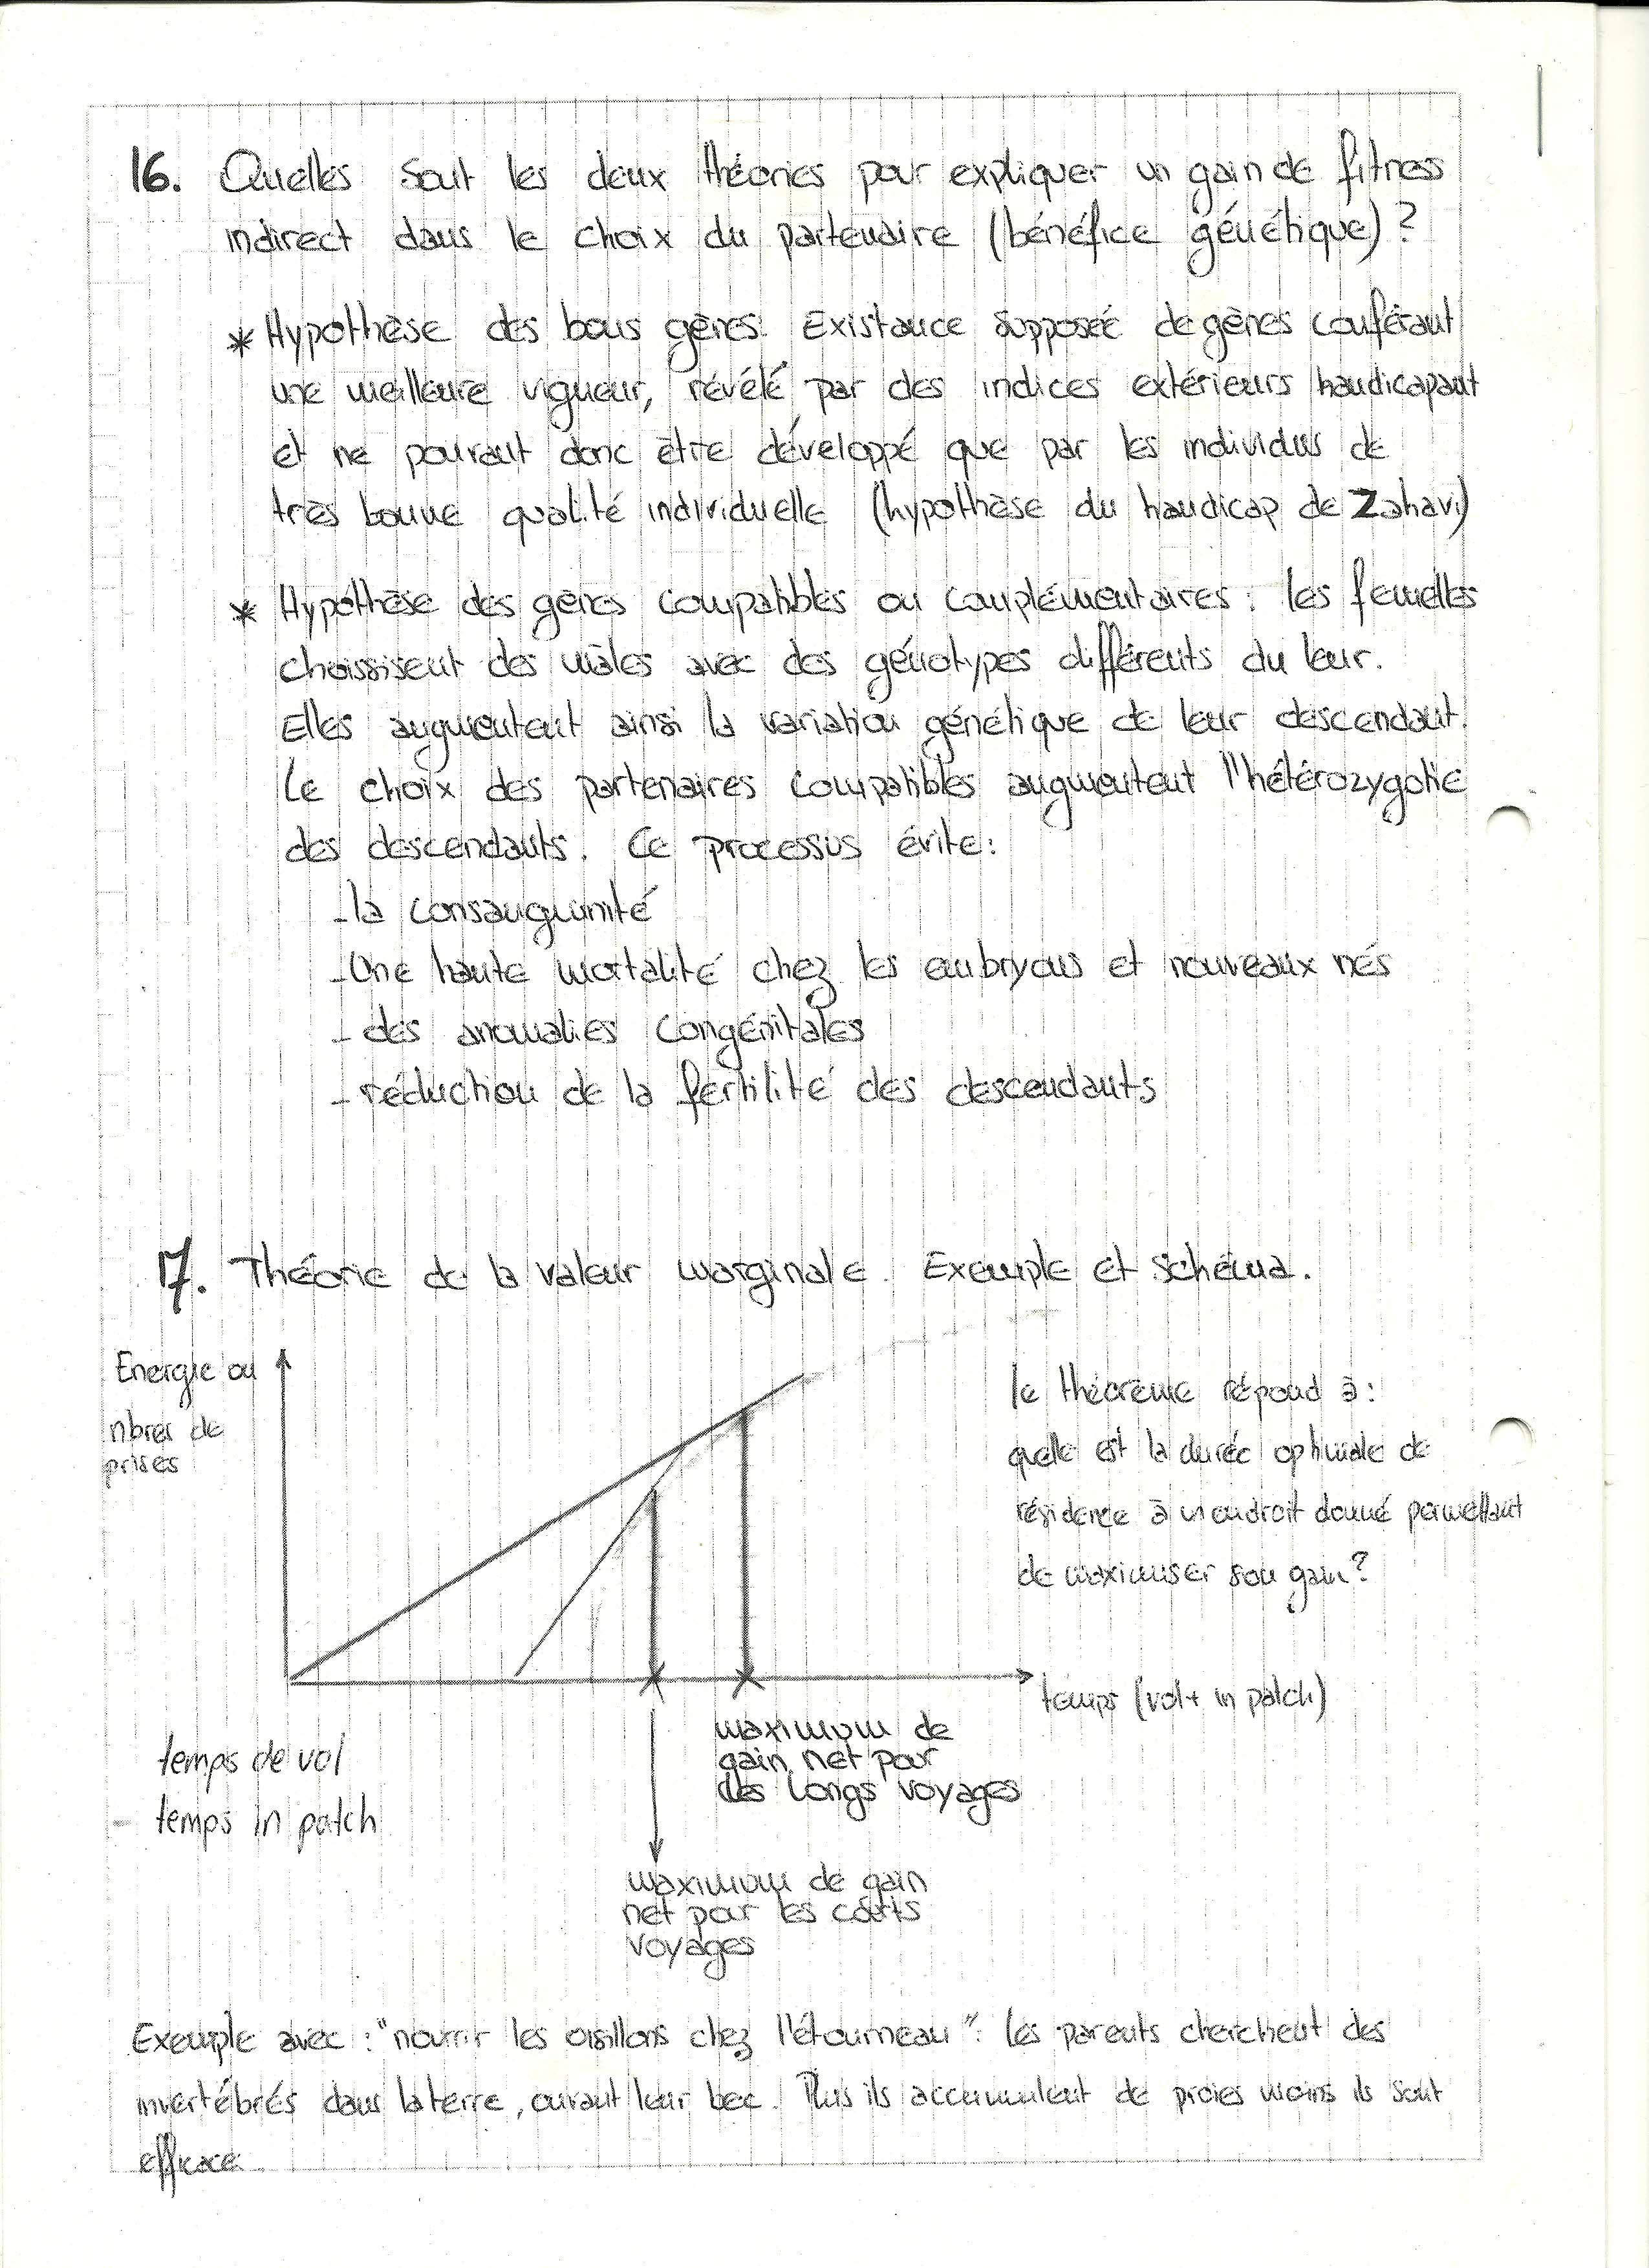 16. Quelles sont les deux théories pour expliquer un gain de fitness
indirect dans le choix du partenaire (bénéfice génétique) ?
* Hypothèse des bons gènes: Existance supposée de gènes conférant
une meilleure vigueur, révélé par des indices extérieurs handicapant
et ne pouvant donc être développé que par les individus de
très bonne qualité individuelle (hypothèse du handicap de Zahavi)
* Hypothèse des gènes compatibles ou complémentaires : les femelles
choissisent des mâles avec des génotypes différents du leur.
Elles augmentent ainsi la variation génétique de leur descendant.
Le choix des partenaires compatibles augmentent l'hétérozygotie
des descendants. Ce processus évite:
- la consanguinité
- Une haute mortalité chez les embryons et nouveaux nés
- des anomalies congénitales
- réduction de la fertilité des descendants
17. Théorie de la valeur marginale. Exemple et schéma.
Energie ou
nbres de
prises
le théorème répond à :
quelle est la durée optimale de
résidence à un endroit donné permettant
de maximiser son gain ?
temps (vol + in patch)
temps de vol
- temps in patch
maximum de
gain net pour
des longs voyages
maximum de gain
net pour les courts
voyages
Exemple avec : "nourrir les oisillons chez l'étourneau" : Les parents cherchent des
invertébrés dans la terre, ouvrant leur bec. Plus ils accumulent de proies moins ils sont
efficace.